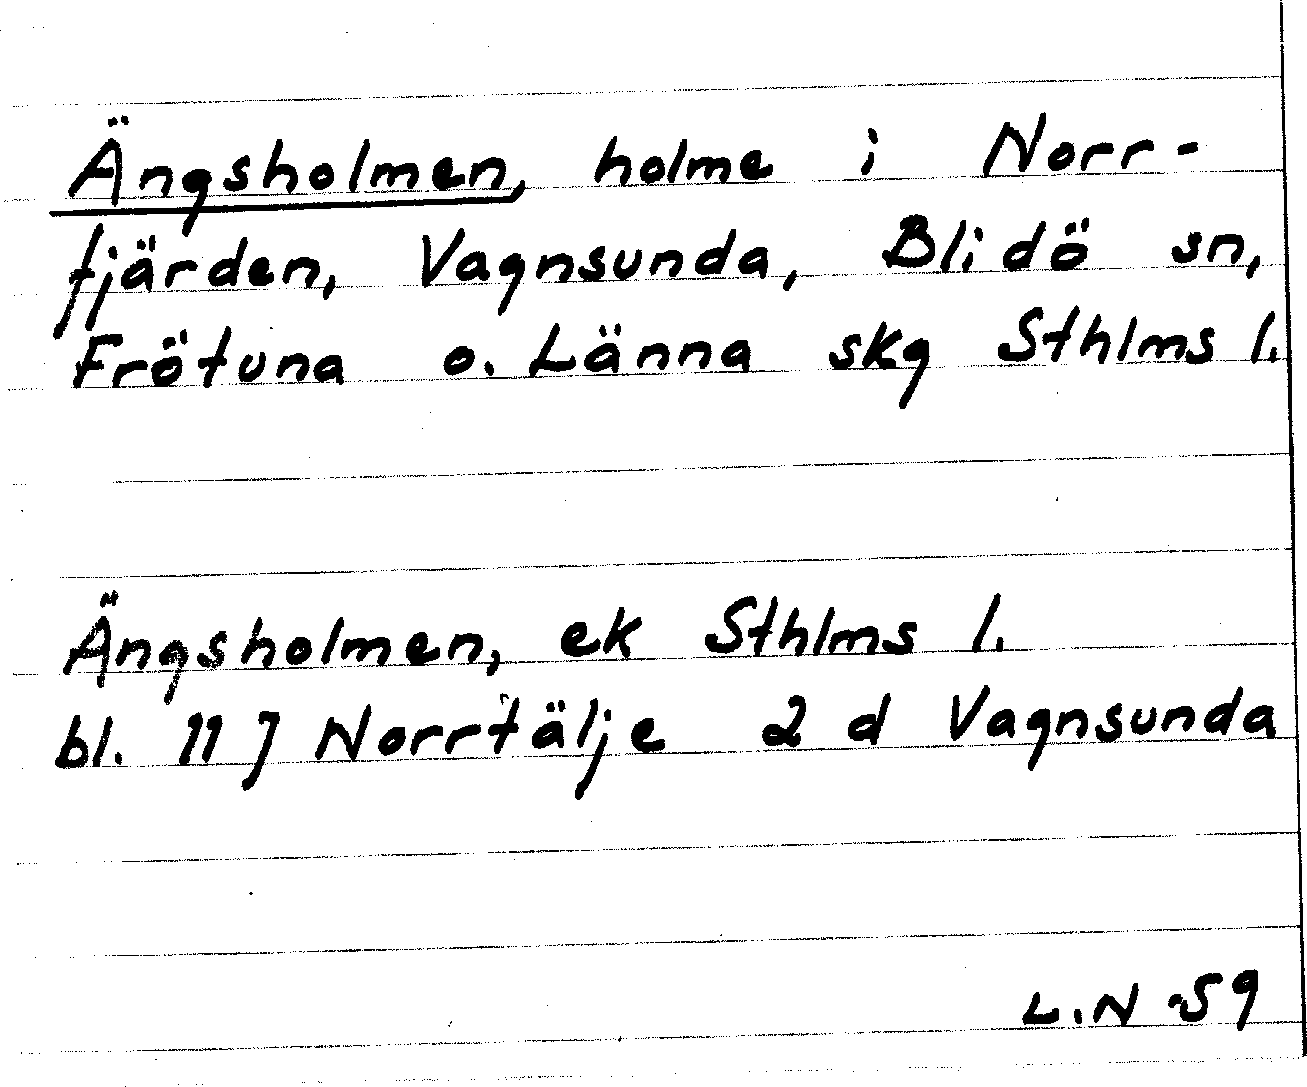 Ängsholmen, holme i Norr-
fjärden, Vagnsunda, Blidö sn,
Frötuna o. Länna skg Sthlms l.
Ängsholmen, ek Sthlms l.
bl. 11 J Norrtälje 2 d Vagnsunda
L.N -59